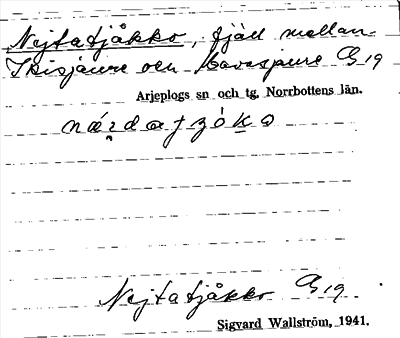 Nejtatjåkko, fjäll mellan
Ikisjaure och Kavasjaure G 19
Arjeplogs sn och tg, Norrbottens län.
Nejtatjåkko G 19
Sigvard Wallström, 1941.